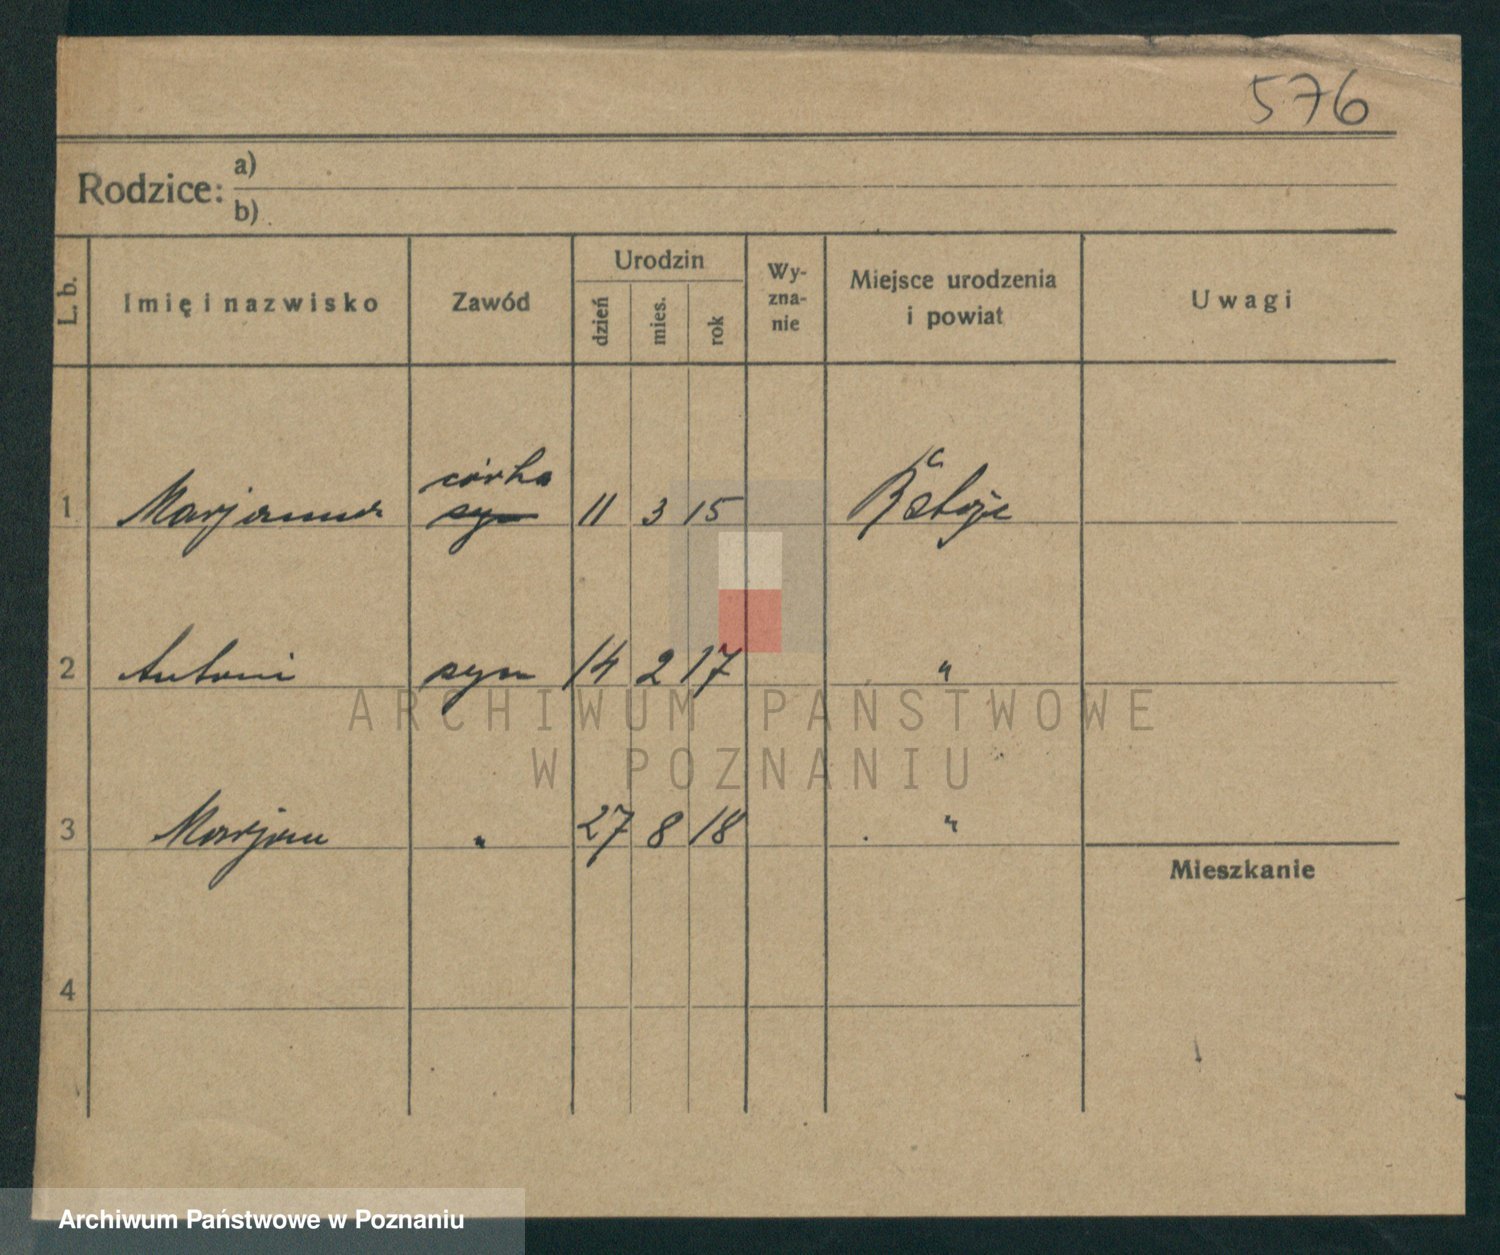 576
Rodzice: a)
b)
L. b.
Imię i nazwisko
Zawód
Urodzin
dzień
mies.
rok
Wy-
zna-
nie
Miejsce urodzenia
i powiat
Uwagi
córka
1 Marjanna syn 11 3 15
2 Antoni syn 14 2 17 "
ARCHIWUM PAŃSTWOWE
W POZNANIU
3 Marjan " 27 8 18 "
Mieszkanie
4
Archiwum Państwowe w Poznaniu